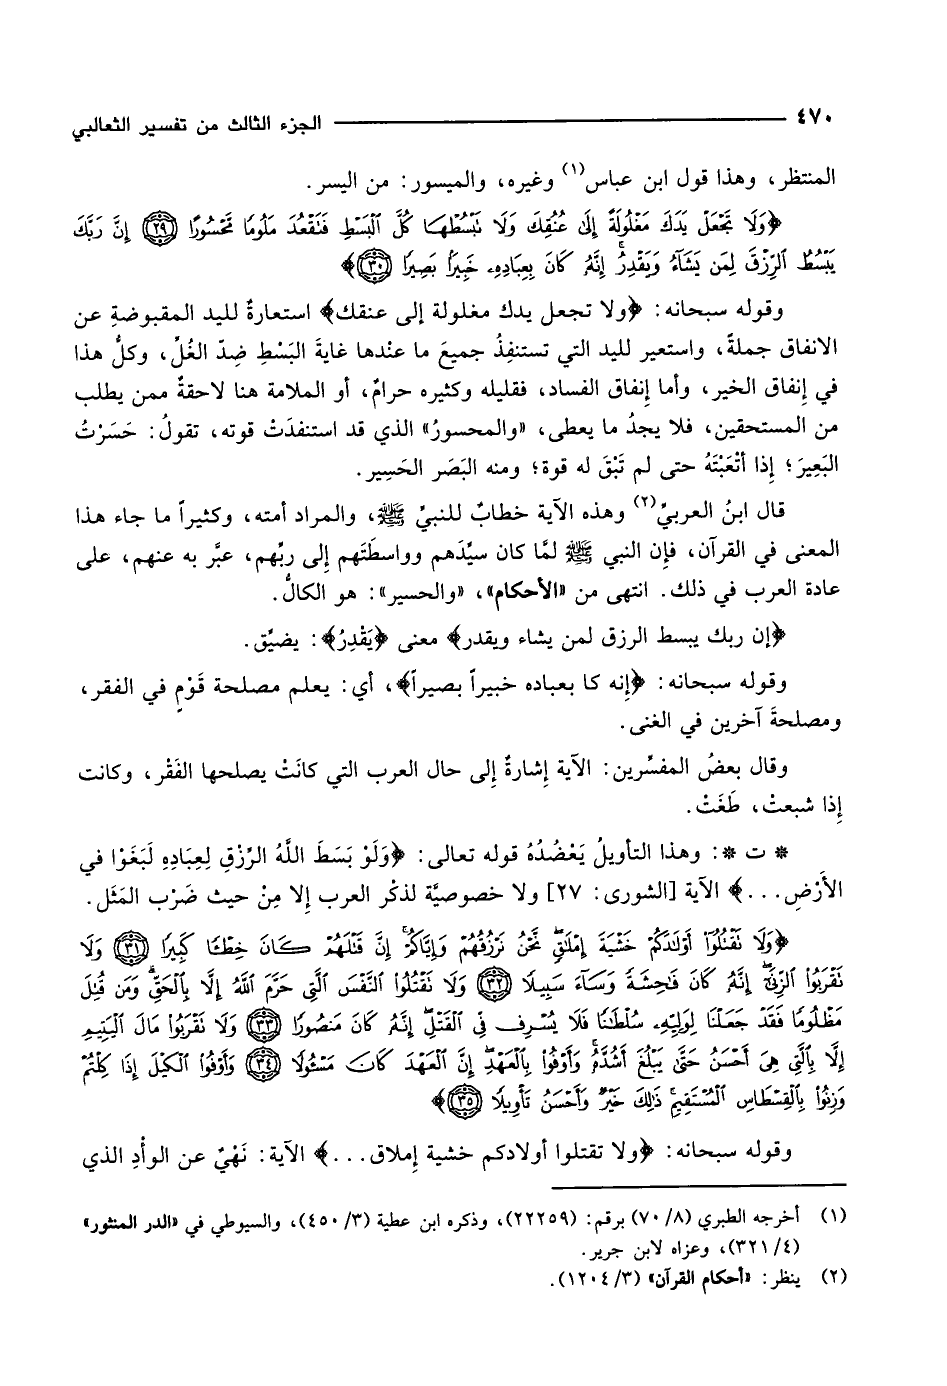 ٤٧٠ ــــــــــــ الجزء الثالث من تفسير الثعالبي
المنتظر، وهذا قول ابن عباس(١) وغيره، والميسور: من اليسر.
﴿وَلَا تَجْعَلْ يَدَكَ مَغْلُولَةً إِلَىٰ عُنُقِكَ وَلَا تَبْسُطْهَا كُلَّ ٱلْبَسْطِ فَتَقْعُدَ مَلُومًا مَّحْسُورًا ﴿٢٩﴾ إِنَّ رَبَّكَ
يَبْسُطُ ٱلرِّزْقَ لِمَن يَشَآءُ وَيَقْدِرُ إِنَّهُۥ كَانَ بِعِبَادِهِۦ خَبِيرًۢا بَصِيرًا ﴿٣٠﴾﴾
وقوله سبحانه: ﴿ولا تجعل يدك مغلولة إلى عنقك﴾ استعارةٌ لليد المقبوضةِ عن
الانفاق جملةً، واستعير لليد التي تستنفِذُ جميعَ ما عنْدها غايةَ البَسْطِ ضِدّ الغُلِّ، وكلُّ هذا
في إِنفاق الخير، وأما إِنفاق الفساد، فقليله وكثيره حرامٌ، أو الملامة هنا لاحقةٌ ممن يطلب
من المستحقين، فلا يجدُ ما يعطى، «والمحسورُ» الذي قد استنفدَتْ قوته، تقولُ: حَسَرْتُ
البَعِيرَ؛ إِذا أتْعَبْتَهُ حتى لم تَبْقَ له قوة؛ ومنه البَصَر الحَسِير.
قال ابنُ العربيِّ(٢) وهذه الآية خطابٌ للنبيِّ ﷺ، والمراد أمته، وكثيراً ما جاء هذا
المعنى في القرآن، فإِن النبي ﷺ لمَّا كان سيِّدَهم وواسطَتَهم إِلى ربِّهم، عبَّر به عنهم، على
عادة العرب في ذلك. انتهى من «الأحكام»، «والحسير»: هو الكالُّ.
﴿إن ربك يبسط الرزق لمن يشاء ويقدر﴾ معنى ﴿يَقْدِرُ﴾: يضيِّق.
وقوله سبحانه: ﴿إِنه كا بعباده خبيراً بصيراً﴾، أي: يعلم مصلحة قَوْمٍ في الفقر،
ومصلحةَ آخرين في الغنى.
وقال بعضُ المفسِّرين: الآية إِشارةٌ إِلى حال العرب التي كانَتْ يصلحها الفَقْر، وكانت
إِذا شبعتْ، طَغَتْ.
* ت *: وهذا التأويلُ يَعْضُدُهُ قوله تعالى: ﴿وَلَوْ بَسَطَ اللَّهُ الرِّزْقِ لِعِبَادِهِ لَبَغَوْا في
الأَرْضِ...﴾ الآية [الشورى: ٢٧] ولا خصوصيَّة لذكْر العرب إِلا مِنْ حيث ضَرْب المَثَل.
﴿وَلَا نَقْتُلُوٓا۟ أَوْلَٰدَكُمْ خَشْيَةَ إِمْلَٰقٍ نَّحْنُ نَرْزُقُهُمْ وَإِيَّاكُمْ إِنَّ قَتْلَهُمْ كَانَ خِطْـًٔا كَبِيرًا ﴿٣١﴾ وَلَا
تَقْرَبُوا۟ ٱلزِّنَىٰٓ إِنَّهُۥ كَانَ فَٰحِشَةً وَسَآءَ سَبِيلًا ﴿٣٢﴾ وَلَا تَقْتُلُوا۟ ٱلنَّفْسَ ٱلَّتِى حَرَّمَ ٱللَّهُ إِلَّا بِٱلْحَقِّ وَمَن قُتِلَ
مَظْلُومًا فَقَدْ جَعَلْنَا لِوَلِيِّهِۦ سُلْطَٰنًا فَلَا يُسْرِف فِّى ٱلْقَتْلِ إِنَّهُۥ كَانَ مَنصُورًا ﴿٣٣﴾ وَلَا تَقْرَبُوا۟ مَالَ ٱلْيَتِيمِ
إِلَّا بِٱلَّتِى هِىَ أَحْسَنُ حَتَّىٰ يَبْلُغَ أَشُدَّهُۥ وَأَوْفُوا۟ بِٱلْعَهْدِ إِنَّ ٱلْعَهْدَ كَانَ مَسْـُٔولًا ﴿٣٤﴾ وَأَوْفُوا۟ ٱلْكَيْلَ إِذَا كِلْتُمْ
وَزِنُوا۟ بِٱلْقِسْطَاسِ ٱلْمُسْتَقِيمِ ذَٰلِكَ خَيْرٌ وَأَحْسَنُ تَأْوِيلًا ﴿٣٥﴾﴾
وقوله سبحانه: ﴿ولا تقتلوا أولادكم خشية إِملاق...﴾ الآية: نَهْيٌ عن الوأْدِ الذي
(١) أخرجه الطبري (٧٠/٨) برقم: (٢٢٢٥٩)، وذكره ابن عطية (٤٥٠/٣)، والسيوطي في «الدر المنثور»
(٣٢١/٤)، وعزاه لابن جرير.
(٢) ينظر: «أحكام القرآن» (١٢٠٤/٣).